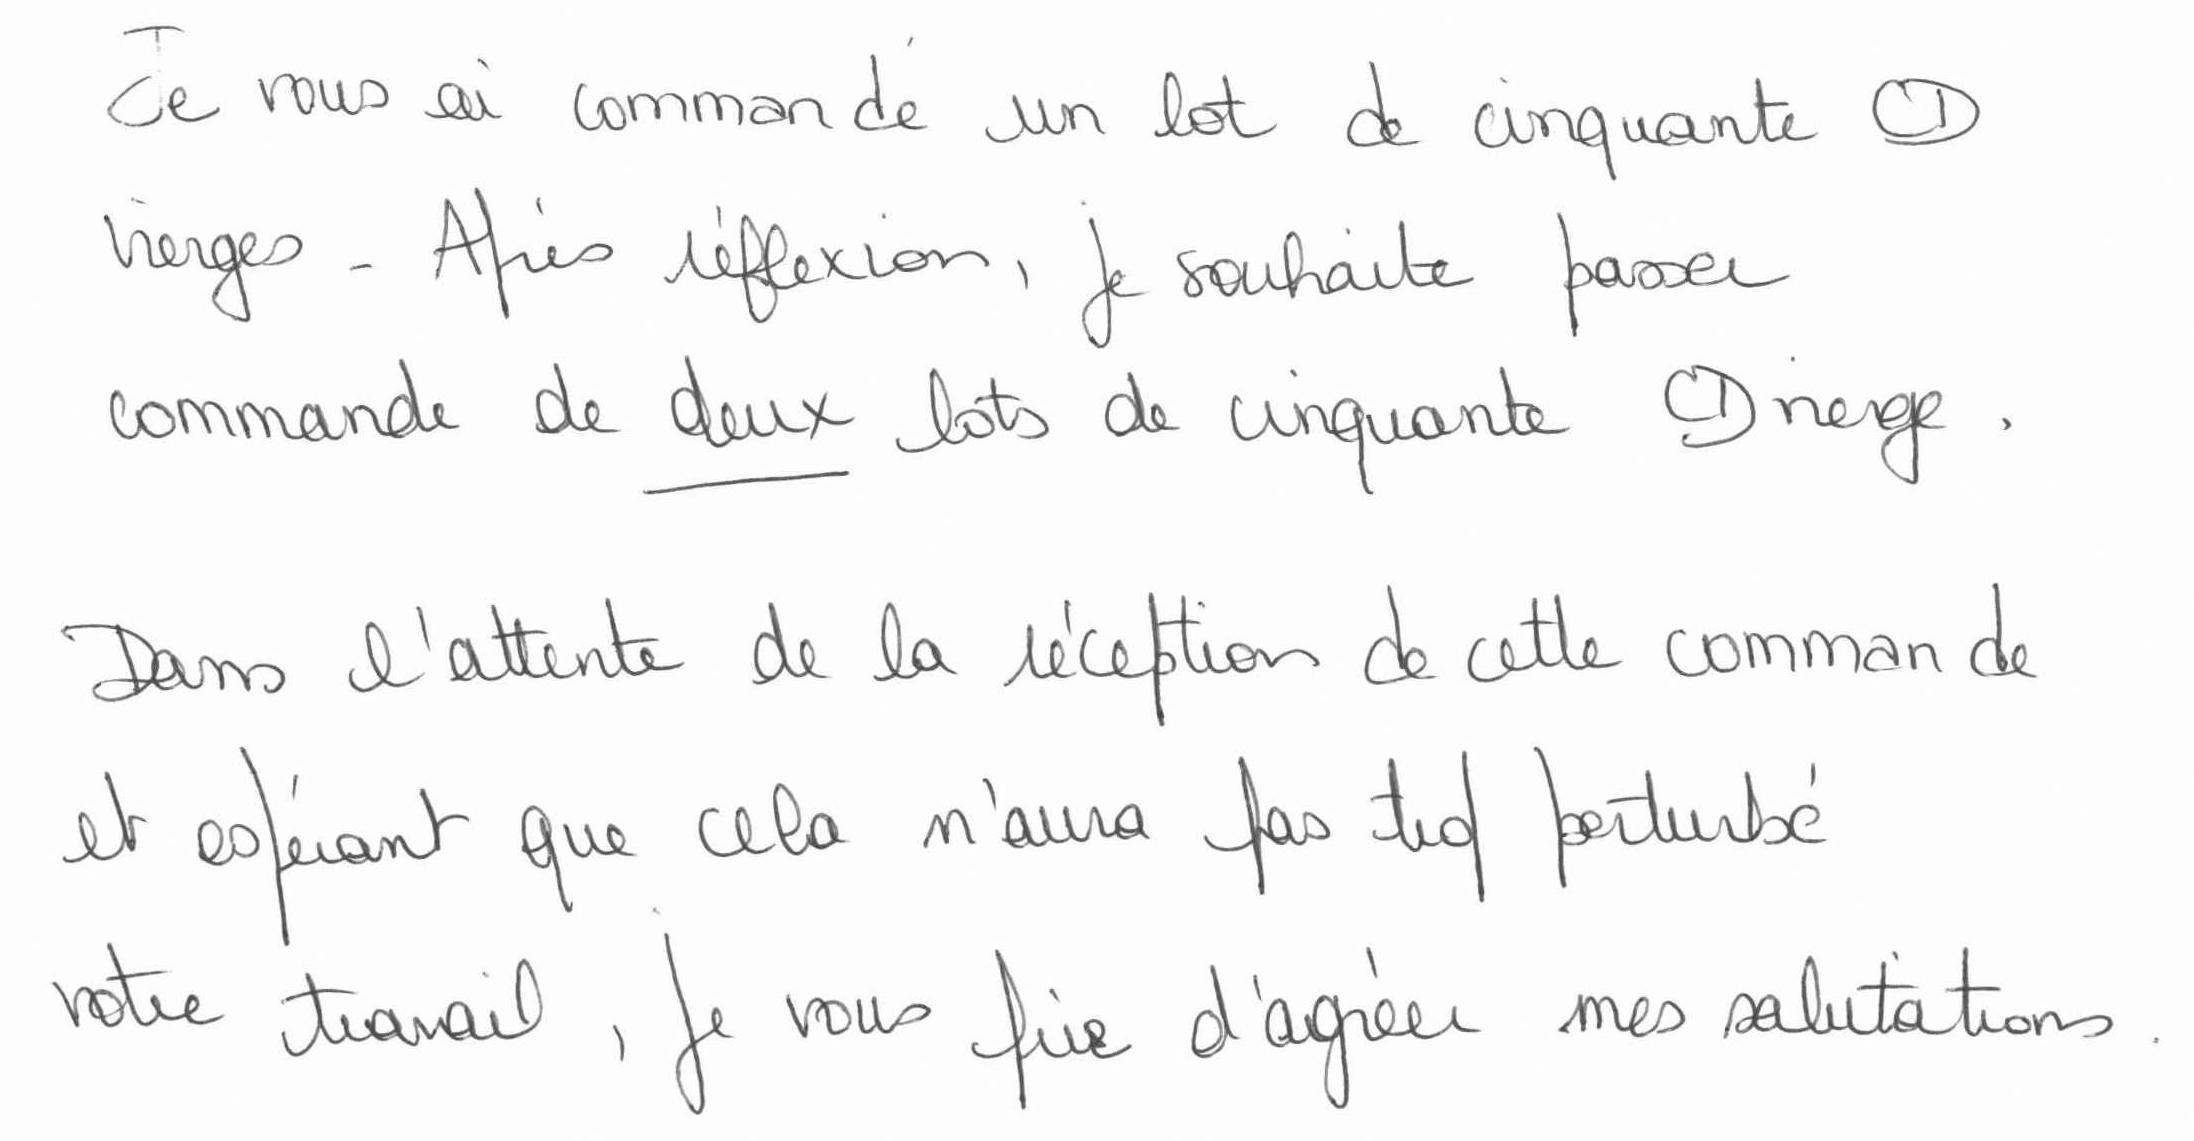 Je vous ai commandé un lot de cinquante CD
vierges. Après réflexion, je souhaite passer
commande de deux lots de cinquante CD vierge.
Dans l'attente de la réception de cette commande
et espérant que cela n'aura pas trop perturbé
votre travail, je vous prie d'agréer mes salutations.